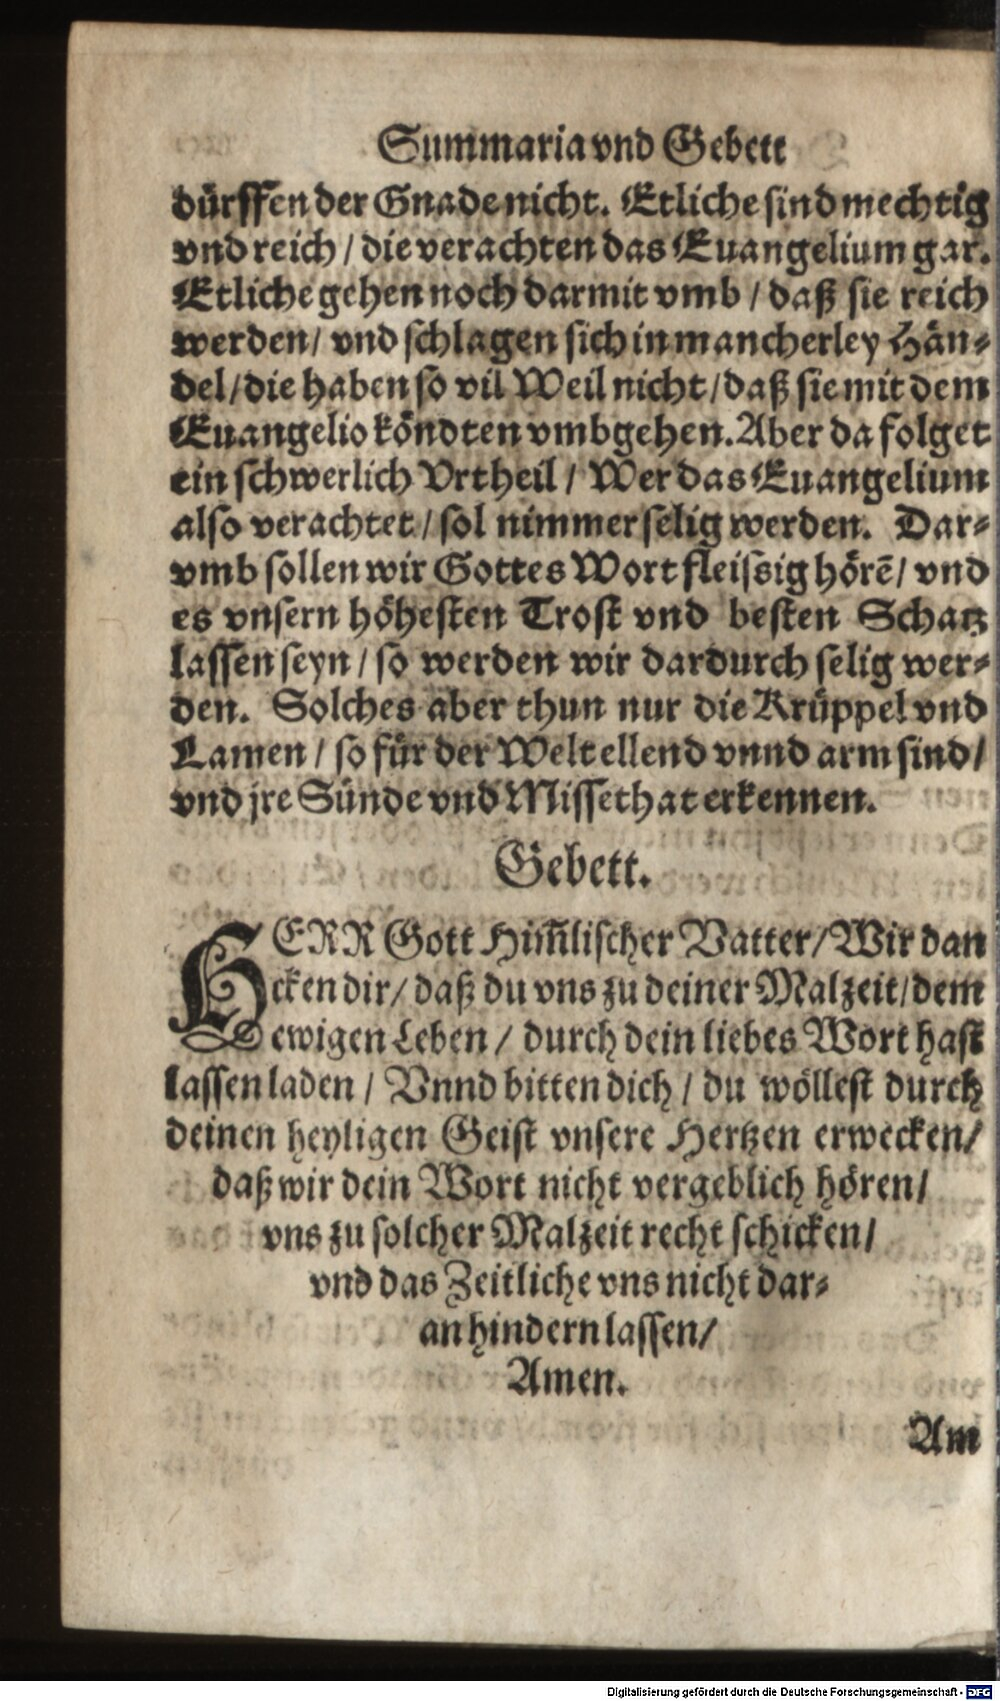 Summaria vnd Gebett
dürffen der Gnade nicht. Etliche sind mechtig
vnd reich / die verachten das Euangelium gar.
Etliche gehen noch darmit vmb / daß sie reich
werden / vnd schlagen sich in mancherley Hän⸗
del / die haben so vil Weil nicht / daß sie mit dem
Euangelio köndten vmbgehen. Aber da folget
ein schwerlich Vrtheil / Wer das Euangelium
also verachtet / sol nimmer selig werden. Dar⸗
vmb sollen wir Gottes Wort fleissig hörẽ / vnd
es vnsern höhesten Trost vnd besten Schatz
lassen seyn / so werden wir dardurch selig wer⸗
den. Solches aber thun nur die Krüppel vnd
Lamen / so für der Welt ellend vnnd arm sind /
vnd jre Sünde vnd Missethat erkennen.
Gebett.
HERR Gott Him̃lischer Vatter / Wir dan
cken dir / daß du vns zu deiner Malzeit / dem
ewigen Leben / durch dein liebes Wort hast
lassen laden / Vnnd bitten dich / du wöllest durch
deinen heyligen Geist vnsere Hertzen erwecken /
daß wir dein Wort nicht vergeblich hören /
vns zu solcher Malzeit recht schicken /
vnd das Zeitliche vns nicht dar⸗
an hindern lassen /
Amen.
Am
Digitalisierung gefördert durch die Deutsche Forschungsgemeinschaft - DFG